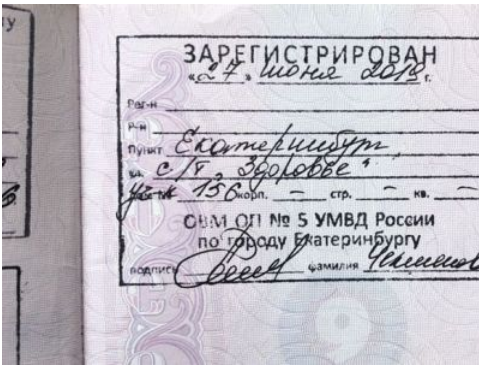 ЗАРЕГИСТРИРОВАН
«27» июня 2018 г.
Рег-н
Р-н
Пункт Екатеринбург,
ул. с/т „Здоровье"
уч-к 156 корп. – стр. – кв. –
ОВМ ОП № 5 УМВД России
по городу Екатеринбургу
подпись фамилия